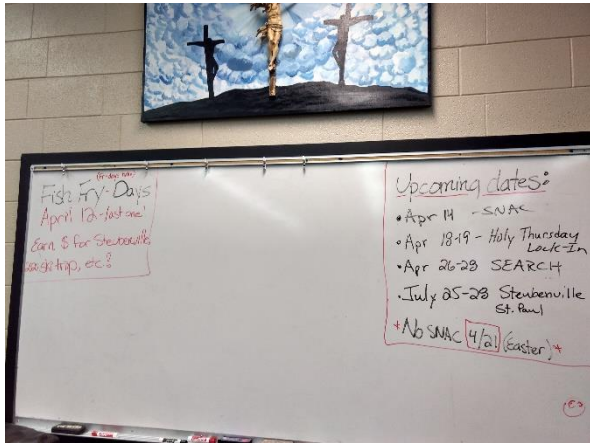 (Fridays
Fish Fry-Days
April 12 - last one!
Earn $ for Steubenville,
ski trip, etc!
Upcoming dates:
• Apr 14 - SNAC
• Apr 18-19 - Holy Thursday
Lock-In
• Apr 26-28 SEARCH
• July 25-28 Steubenville
St. Paul
* No SNAC 4/21 (Easter) *